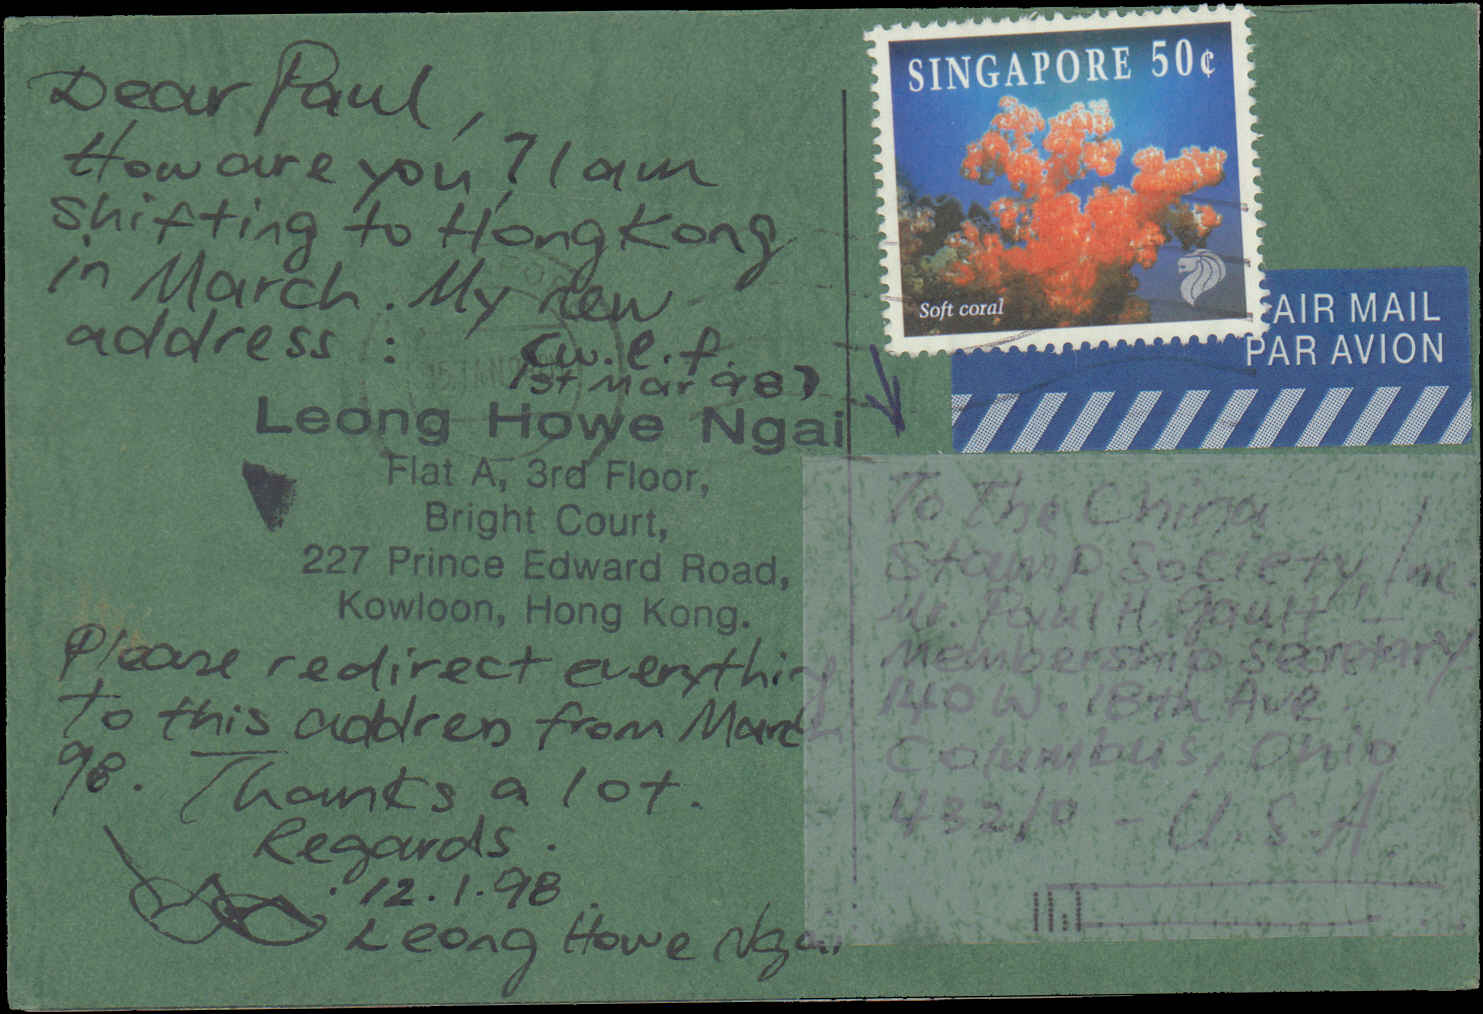 Dear Paul,
How are you? I am
shifting to Hong Kong
in March. My new
address : (w.e.f.
1st Mar 98)
Leong Howe Ngai
Flat A, 3rd Floor,
Bright Court,
227 Prince Edward Road,
Kowloon, Hong Kong.
Please redirect everything
to this address from March
98. Thanks a lot.
Regards.
12.1.98
Leong Howe Ngai
SINGAPORE 50¢
Soft coral
AIR MAIL
PAR AVION
To The China
Stamp Society, Inc.
Mr. Paul H. Gault
Membership Secretary
140 W. 18th Ave
Columbus, Ohio
43210 - U.S.A